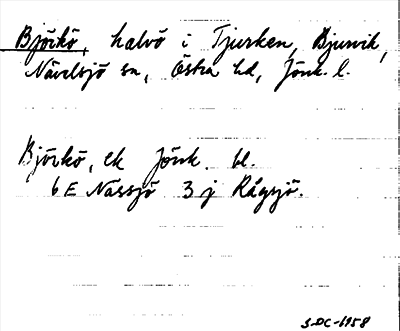 Björkö, halvö i Tjurken, Djurvik,
Nävelsjö sn, Östra hd, Jönk. l.
Björkö, ek Jönk. bl.
6 E Nässjö 3 j Rågsjö.
S-DC-1958